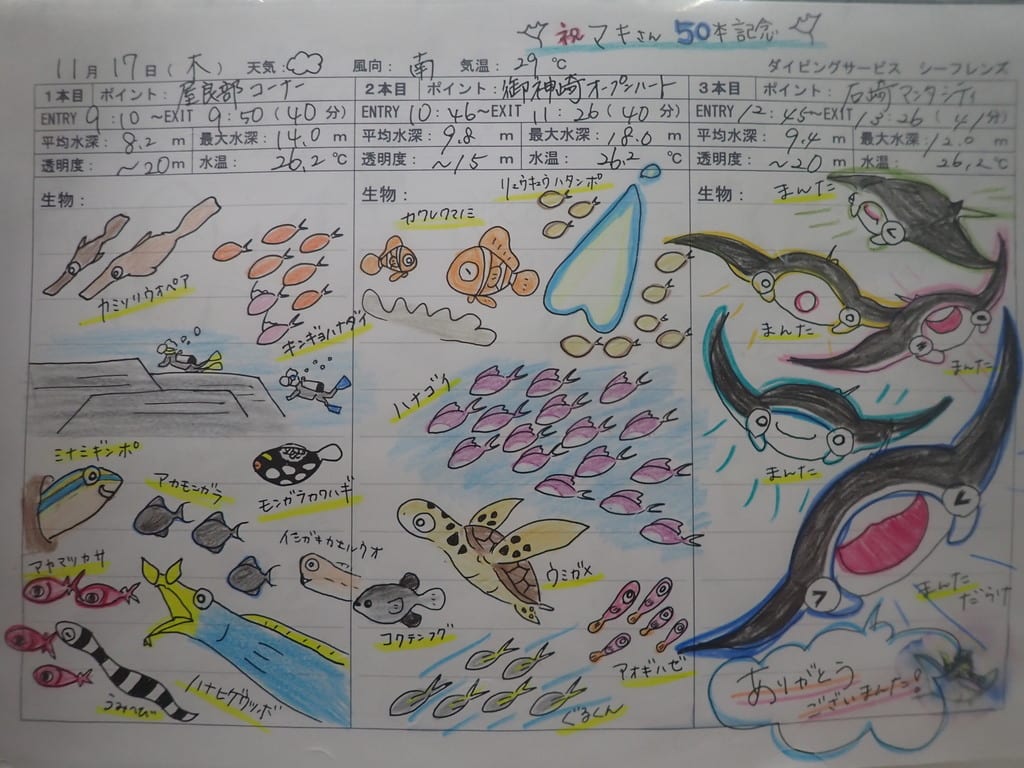 祝 マキさん 50本記念
11月 17日(木) 天気: 風向: 南 気温: 29℃ ダイビングサービス シーフレンズ
1本目 ポイント: 屋良部コーナー
ENTRY 9:10~EXIT 9:50(40分)
平均水深: 8.2 m 最大水深: 14.0 m
透明度: ~20 m 水温: 26.2 ℃
生物:
カミソリウオペア
キンギョハナダイ
ミナミギンポ
アカモンガラ
モンガラカワハギ
イシガキカエルウオ
アヤマツカサ
うみへび
ハナヒゲウツボ
2本目 ポイント: 御神崎オープンハート
ENTRY 10:46~EXIT 11:26(40分)
平均水深: 9.8 m 最大水深: 18.0 m
透明度: ~15 m 水温: 26.2 ℃
生物:
リュウキュウハタンポ
カクレクマノミ
ハナゴイ
ウミガメ
コクテンフグ
アオギハゼ
ぐるくん
3本目 ポイント: 石崎マンタシティ
ENTRY 12:45~EXIT 13:26(41分)
平均水深: 9.4 m 最大水深: 12.0 m
透明度: ~20 m 水温: 26.2 ℃
生物:
まんた
まんた
まんた
まんた
まんた
だらけ
ありがとう
ございまんた!